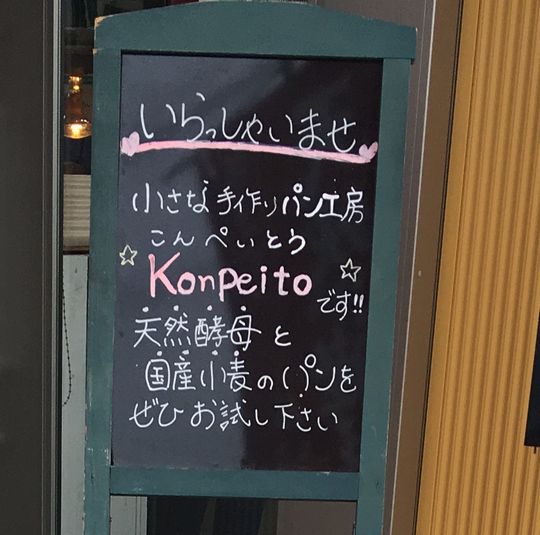 いらっしゃいませ
小さな手作りパン工房
こんぺいとう
☆Konpeito☆です!!
天然酵母と
国産小麦のパンを
ぜひお試し下さい